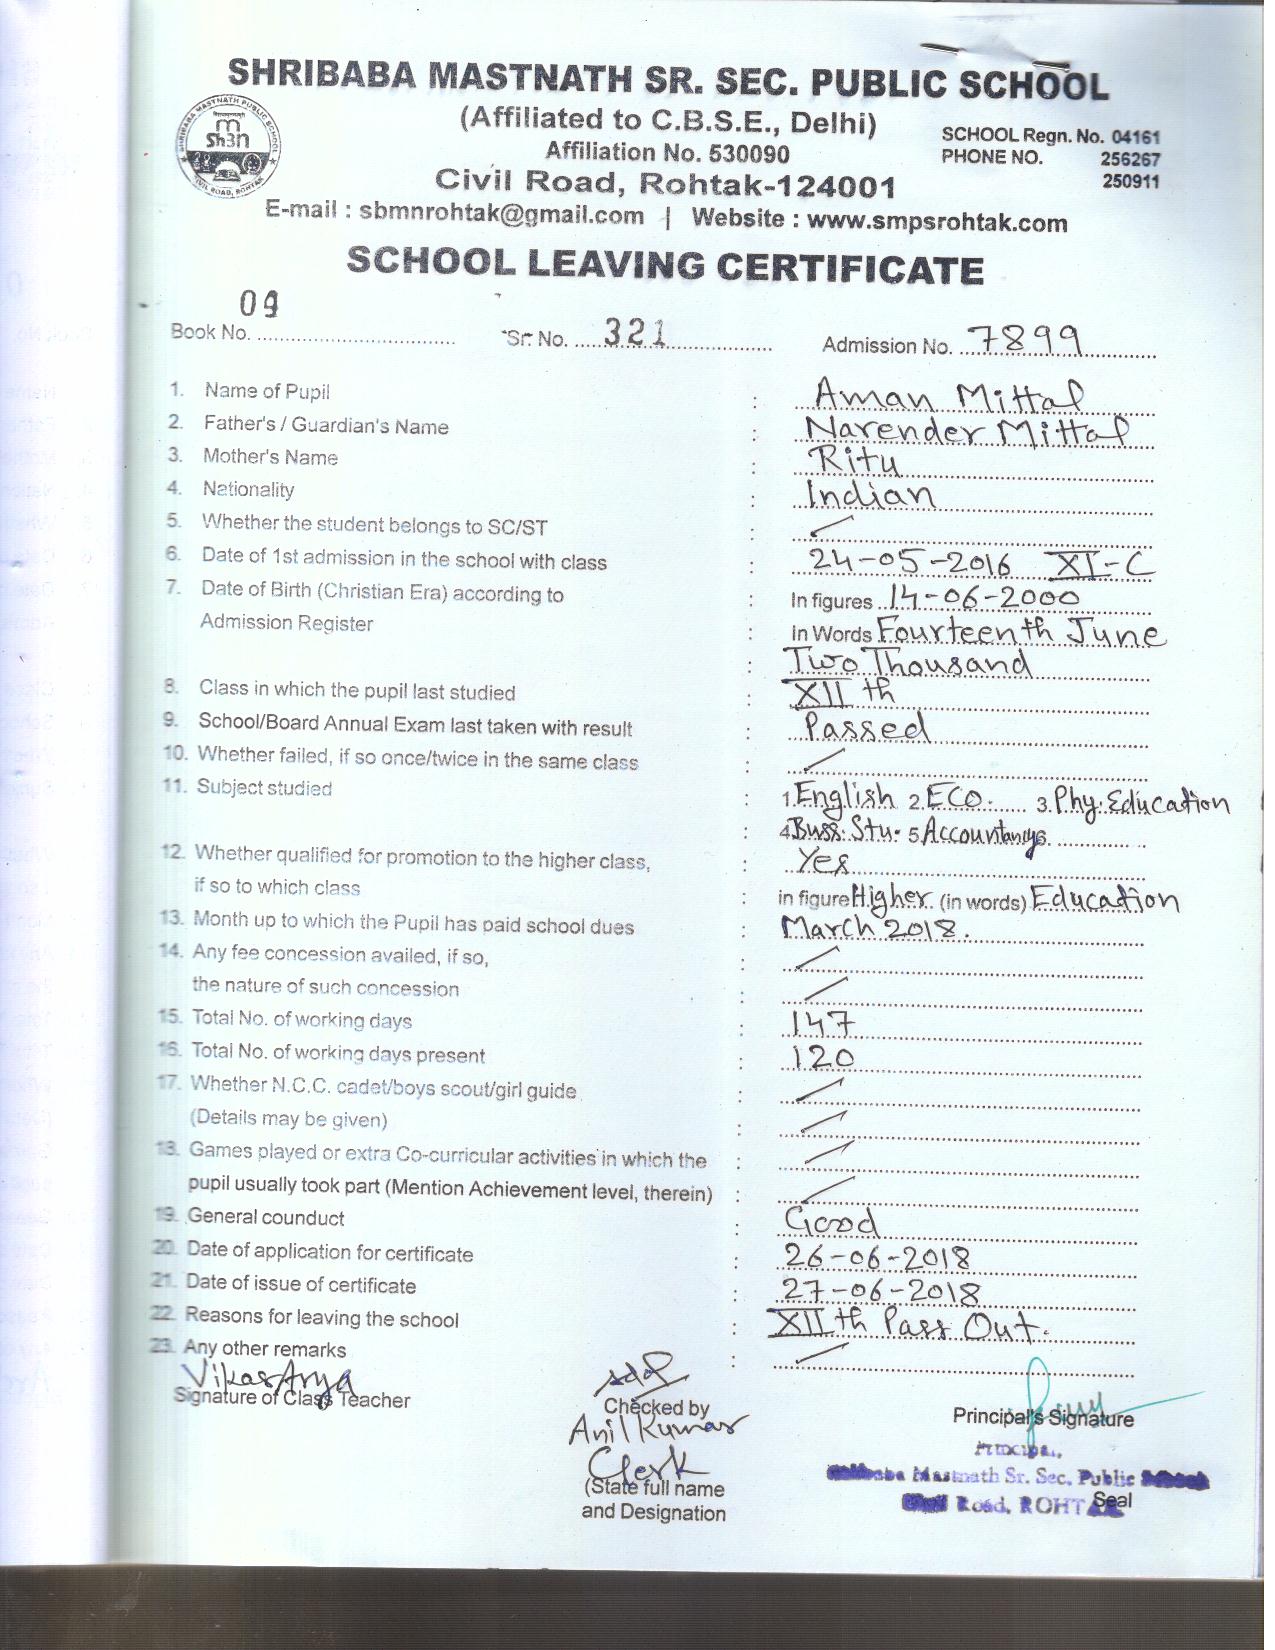 SHRIBABA MASTNATH SR. SEC. PUBLIC SCHOOL
(Affiliated to C.B.S.E., Delhi)
Affiliation No. 530090
SCHOOL Regn. No. 04161
PHONE NO. 256267
250911
Civil Road, Rohtak-124001
E-mail : sbmnrohtak@gmail.com | Website : www.smpsrohtak.com
SHRIBABA MASTNATH PUBLIC SCHOOL
CIVIL ROAD, ROHTAK
SCHOOL LEAVING CERTIFICATE
Book No. 09 Sr. No. 321 Admission No. 7899
1. Name of Pupil : Aman Mittal
2. Father's / Guardian's Name : Narender Mittal
3. Mother's Name : Ritu
4. Nationality : Indian
5. Whether the student belongs to SC/ST :
6. Date of 1st admission in the school with class : 24-05-2016 XI-C
7. Date of Birth (Christian Era) according to : In figures 14-06-2000
Admission Register : In Words Fourteenth June
: Two Thousand
8. Class in which the pupil last studied : XII th
9. School/Board Annual Exam last taken with result : Passed
10. Whether failed, if so once/twice in the same class :
11. Subject studied : 1. English 2. ECO. 3. Phy. Education
: 4. Buss. Stu. 5. Accountancy 6.
12. Whether qualified for promotion to the higher class, : Yes
if so to which class : in figure Higher (in words) Education
13. Month up to which the Pupil has paid school dues : March 2018.
14. Any fee concession availed, if so, :
the nature of such concession :
15. Total No. of working days : 147
16. Total No. of working days present : 120
17. Whether N.C.C. cadet/boys scout/girl guide :
(Details may be given) :
18. Games played or extra Co-curricular activities in which the :
pupil usually took part (Mention Achievement level, therein) :
19. General counduct : Good
20. Date of application for certificate : 26-06-2018
21. Date of issue of certificate : 27-06-2018
22. Reasons for leaving the school : XII th Pass Out.
23. Any other remarks :
Vikas Arya
Signature of Class Teacher
Checked by
Anil Kumar
Clerk
(State full name
and Designation
Principal's Signature
Principal,
Mastnath Sr. Sec. Public School
Civil Road, ROHTAK
Seal